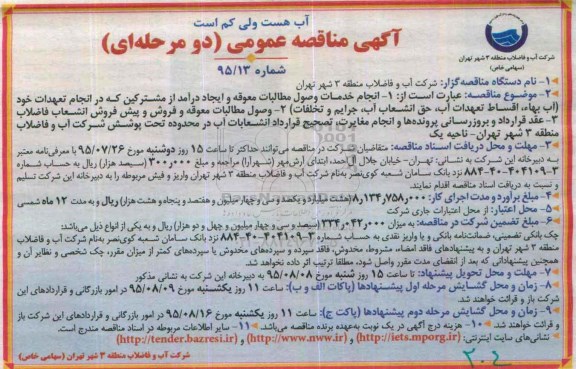 آب هست ولی کم است
آگهی مناقصه عمومی (دو مرحله‌ای)
شماره ۹۵/۱۳
شرکت آب و فاضلاب منطقه ۳ شهر تهران
(سهامی خاص)
۱- نام دستگاه مناقصه‌گزار: شرکت آب و فاضلاب منطقه ۳ شهر تهران
۲- موضوع مناقصه: عبارت است از: ۱- انجام خدمات وصول مطالبات معوقه و ایجاد درآمد از مشترکین که در انجام تعهدات خود
(آب بهاء، اقساط تعهدات آب، حق انشعاب آب، جرایم و تخلفات) ۲- وصول مطالبات معوقه و فروش و پیش فروش انشعاب فاضلاب
۳- عقد قرارداد و بروزرسانی پرونده‌ها و انجام مغایرت، تصحیح قرارداد انشعابات آب در محدوده تحت پوشش شرکت آب و فاضلاب
منطقه ۳ شهر تهران- ناحیه یک
۳- مهلت و محل دریافت اسناد مناقصه: متقاضیان شرکت در مناقصه می‌توانند حداکثر تا ساعت ۱۵ روز دوشنبه مورخ ۹۵/۰۷/۲۶ با معرفی‌نامه معتبر
به دبیرخانه این شرکت به نشانی: تهران- خیابان جلال آل‌احمد ابتدای آرش‌مهر (شهرآرا) مراجعه و مبلغ ۳۰۰٫۰۰۰ (سیصد هزار) ریال به حساب شماره
۸۸۴-۴۰-۴۰۴۱۰۹-۳ نزد بانک سامان شعبه کوی‌نصر به‌نام شرکت آب و فاضلاب منطقه ۳ شهر تهران واریز و فیش مربوطه را به دبیرخانه این شرکت تسلیم
و نسبت به دریافت اسناد مناقصه اقدام نمایند.
۴- مبلغ برآورد و مدت اجرای کار: ۸٫۱۳۴٫۷۵۸٫۰۰۰ (هشت میلیارد و یکصد و سی و چهار میلیون و هفتصد و پنجاه و هشت هزار) ریال و به مدت ۱۲ ماه شمسی
۵- محل اعتبار: از محل اعتبارات جاری شرکت
۶- مبلغ تضمین شرکت در مناقصه: به میزان ۳۳۴٫۰۴۲٫۰۰۰ (سیصد و سی و چهار میلیون و چهل و دو هزار) ریال و به یکی از انواع ذیل می‌باشد:
چک بانکی تضمینی، ضمانتنامه بانکی و یا واریز نقدی به حساب شماره ۸۸۴-۴۰-۴۰۴۱۰۹-۳ نزد بانک سامان شعبه کوی‌نصر به‌نام شرکت آب و فاضلاب
منطقه ۳ شهر تهران و به پیشنهادهای فاقد امضاء، مشروط، مخدوش، فاقد سپرده و سپرده‌های مخدوش یا سپرده‌های کمتر از میزان مقرر، چک شخصی و نظایر آن و
همچنین پیشنهاداتی که بعد از انقضای مدت مقرر واصل شود، مطلقا ترتیب اثر داده نخواهد شد.
۷- مهلت و محل تحویل پیشنهاد: تا ساعت ۱۵ روز شنبه مورخ ۹۵/۰۸/۰۸ به دبیرخانه این شرکت به نشانی مذکور
۸- زمان و محل گشایش مرحله اول پیشنهادها (پاکات الف و ب): ساعت ۱۱ روز یکشنبه مورخ ۹۵/۰۸/۰۹ در امور بازرگانی و قراردادهای این
شرکت باز و قرائت خواهند شد.
۹- زمان و محل گشایش مرحله دوم پیشنهادها (پاکت ج): ساعت ۱۱ روز یکشنبه مورخ ۹۵/۰۸/۱۶ در امور بازرگانی و قراردادهای این شرکت باز
و قرائت خواهند شد. ۱۰- هزینه درج آگهی در یک نوبت به‌عهده برنده مناقصه می‌باشد. ۱۱- سایر اطلاعات مربوطه در اسناد مناقصه مندرج است.
نشانی‌های سایت اینترنتی: (http://iets.mporg.ir) و (http://www.nww.ir) و (http://tender.bazresi.ir)
شرکت آب و فاضلاب منطقه ۳ شهر تهران (سهامی خاص)
۲۰۴